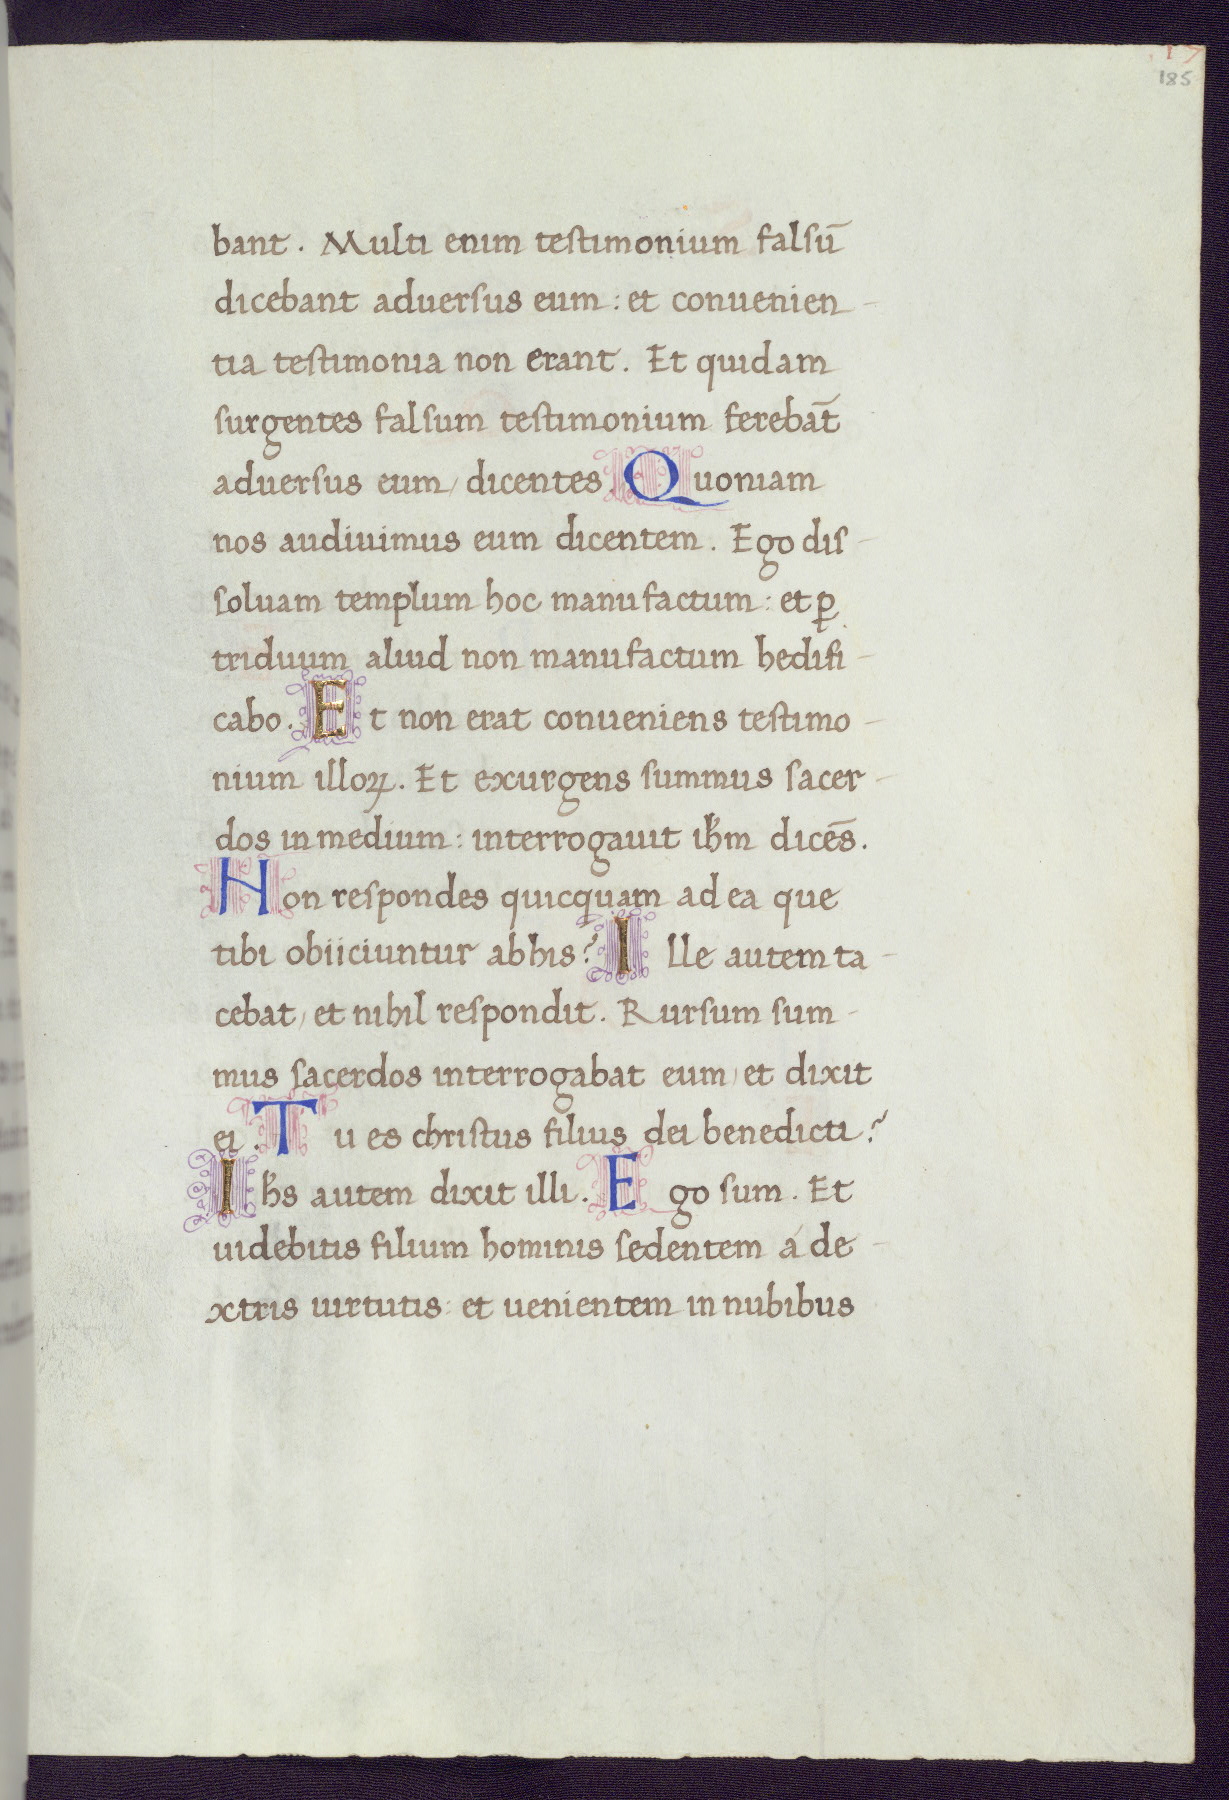 185
bant. Multi enim testimonium falsū
dicebant aduersus eum: et conuenien-
tia testimonia non erant. Et quidam
surgentes falsum testimonium ferebāt
aduersus eum, dicentes. Quoniam
nos audiuimus eum dicentem. Ego dis-
soluam templum hoc manufactum: et ꝑ
triduum aliud non manufactum hedifi-
cabo. Et non erat conueniens testimo-
nium illoꝝ. Et exurgens summus sacer-
dos in medium: interrogauit ih̄m dicēs.
Non respondes quicquam ad ea que
tibi obiiciuntur ab his? Ille autem ta-
cebat, et nihil respondit. Rursum sum-
mus sacerdos interrogabat eum, et dixit
ei. Tu es christus filius dei benedicti?
Ih̄s autem dixit illi. Ego sum. Et
uidebitis filium hominis sedentem á de-
xtris uirtutis: et uenientem in nubibus